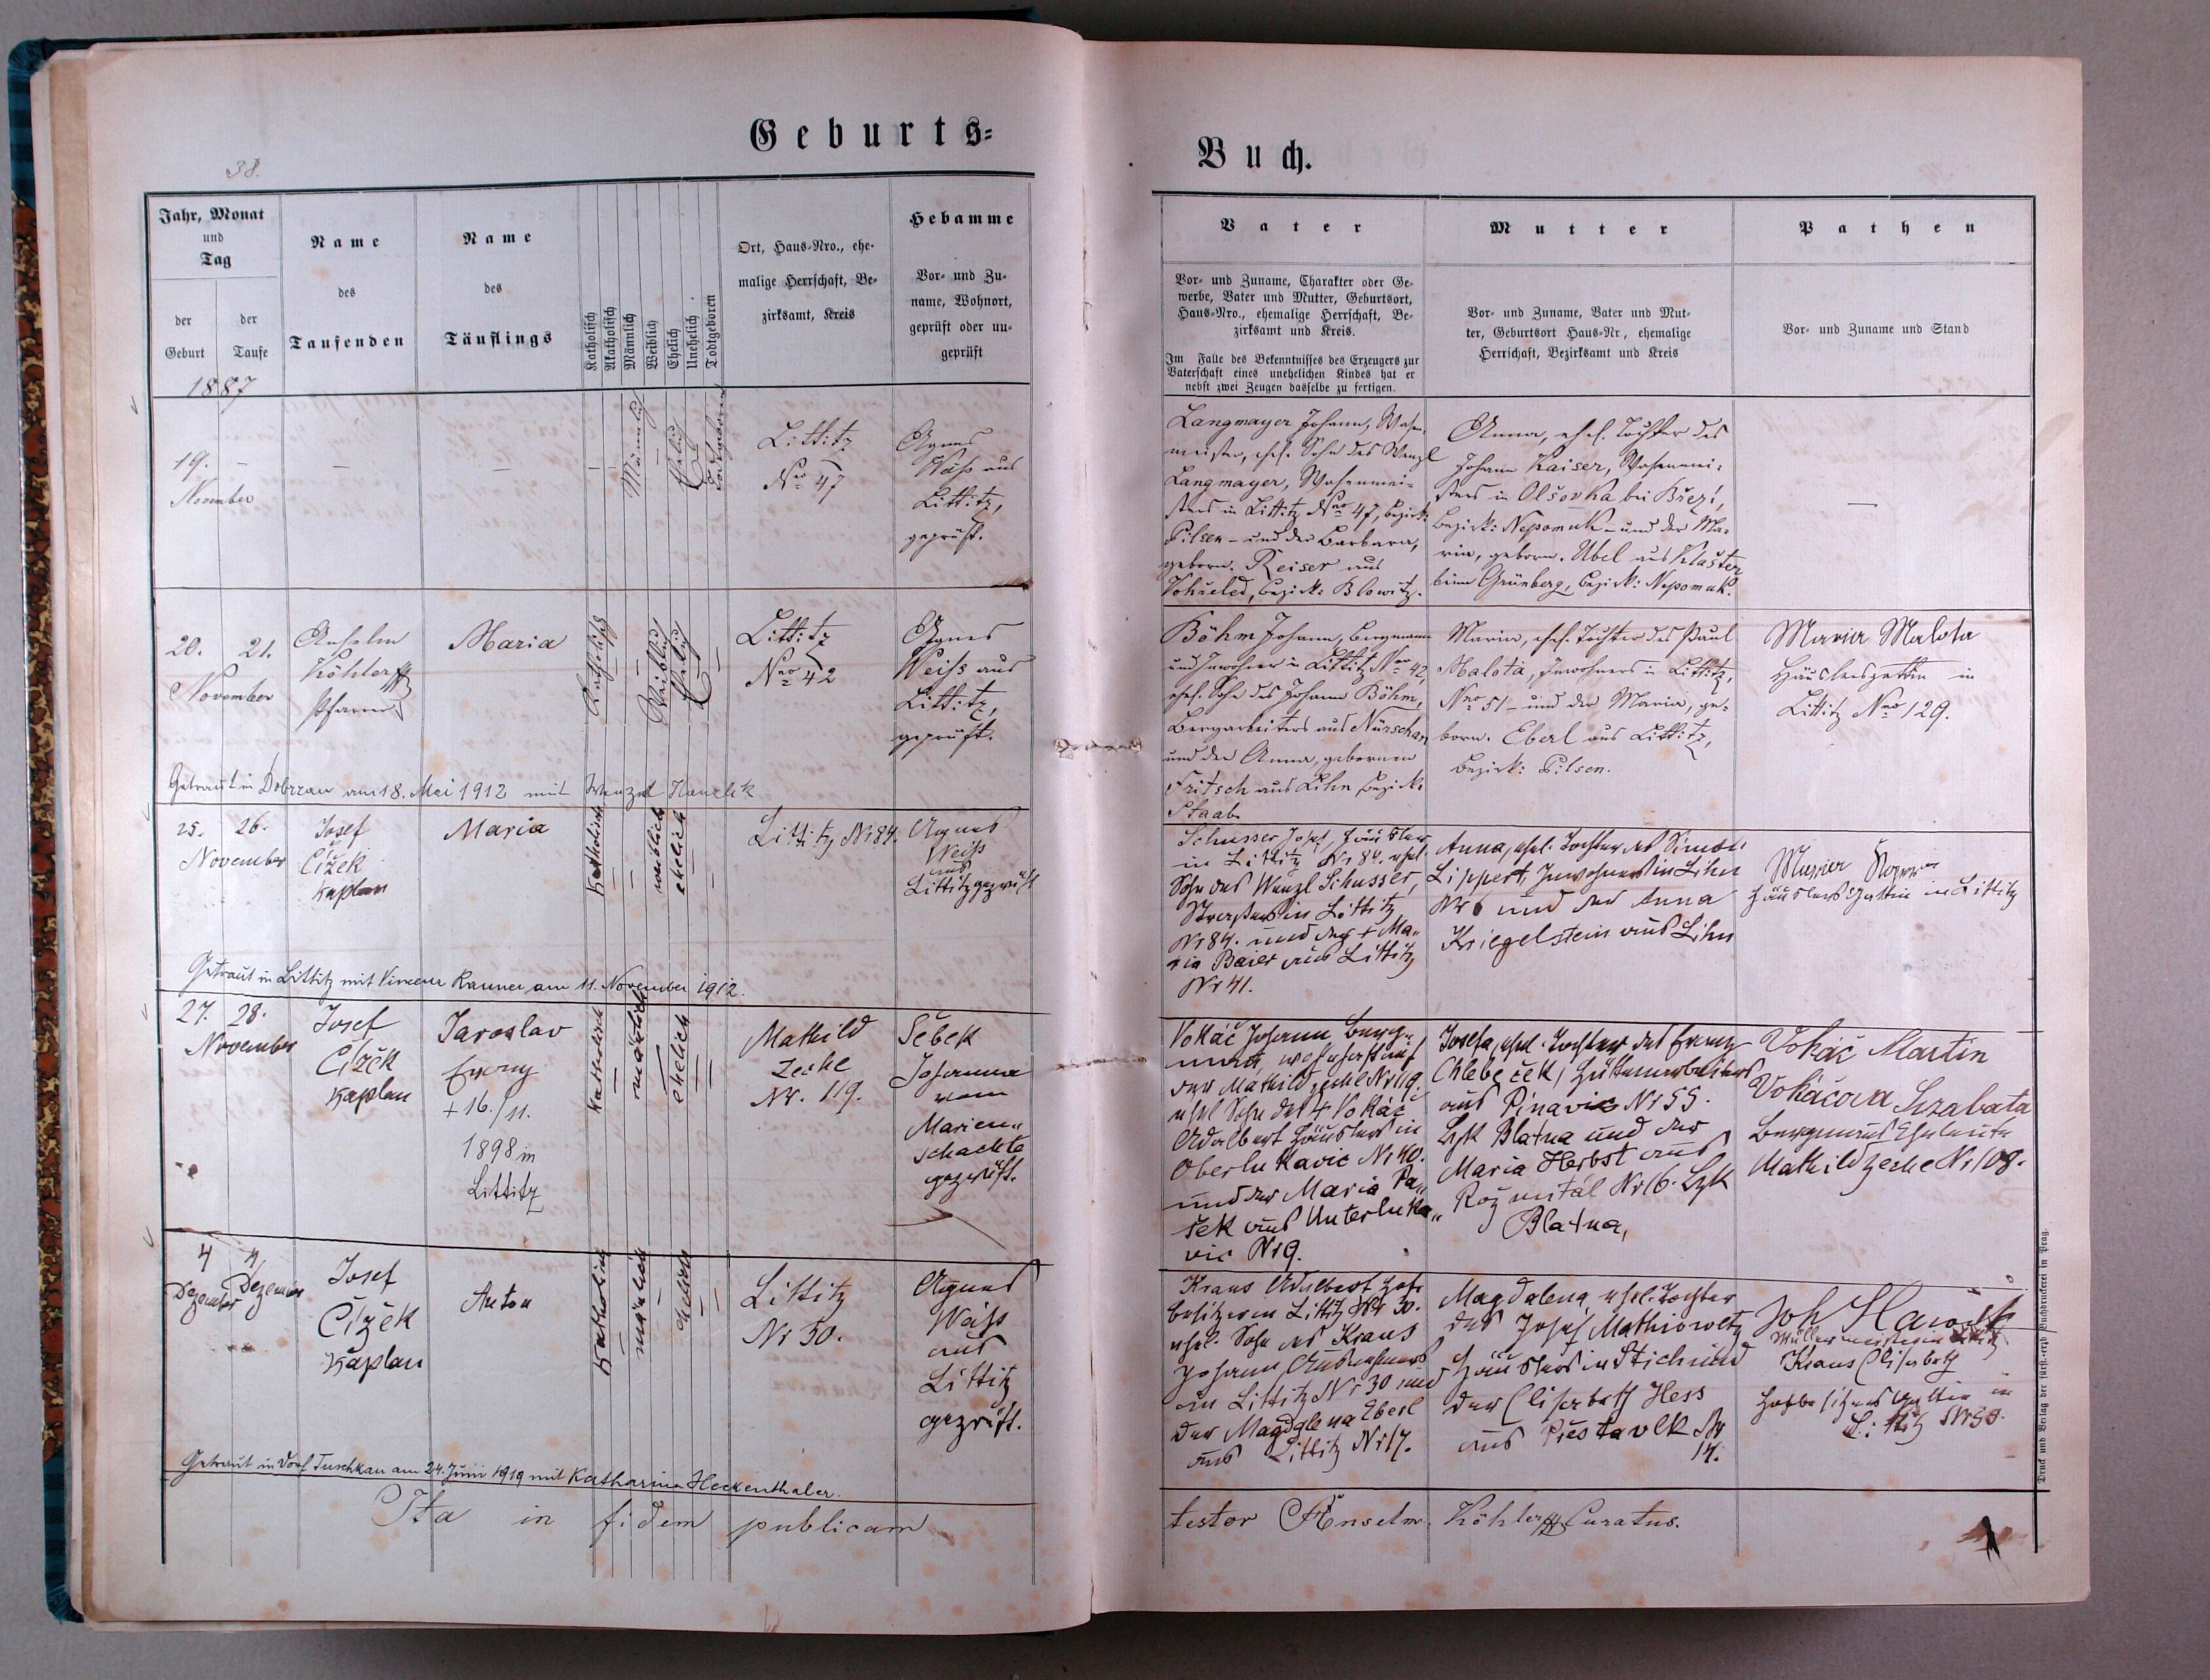 Geburts=
Buch.
38.
Jahr, Monat
und
Tag
der
Geburt
der
Taufe
Name
des
Taufenden
Name
des
Täuflings
Katholisch
Akatholisch
Männlich
Weiblich
Ehelich
Unehelich
Todtgeboren
Ort, Haus-Nro., ehe-
malige Herrschaft, Be-
zirksamt, Kreis
Hebamme
Vor- und Zu-
name, Wohnort,
geprüft oder un-
geprüft
Vater
Vor- und Zuname, Charakter oder Ge-
werbe, Vater und Mutter, Geburtsort,
Haus-Nro., ehemalige Herrschaft, Be-
zirksamt und Kreis.
Im Falle des Bekenntnisses des Erzeugers zur
Vaterschaft eines unehelichen Kindes hat er
nebst zwei Zeugen dasselbe zu fertigen.
Mutter
Vor- und Zuname, Vater und Mut-
ter, Geburtsort Haus-Nr., ehemalige
Herrschaft, Bezirksamt und Kreis
Pathen
Vor- und Zuname und Stand
1887
19. –
November
–
–
Männlich
Ehelich
Todtgeboren
Littitz
Nro 47
Agnes
Weiss aus
Littitz,
geprüft.
Langmayer Johann, Wasen-
meister, ehel. Sohn des Wenzl
Langmayer, Wasenmei-
sters in Littitz Nro 47, Bezirk:
Pilsen – und der Barbara,
geborn. Reiser aus
Bezirk: Blowitz.
Anna, ehel. Tochter des
Johann Kaiser, Wasenmei-
sters in Olšovka bei Březí,
Bezirk: Nepomuk – und der Ma-
ria, geborn. Ubel aus Klaster
beim Grünberg, Bezirk: Nepomuk.
—
20. 21.
November
Anselm
Köhler
Pfarrer
Maria
Katholisch
Weiblich
Ehelich
Littitz
Nro 42
Agnes
Weiss aus
Littitz,
geprüft.
Böhm Johann, Bergmann
und Inwohner in Littitz Nro 42,
ehel. Sohn des Johann Böhm,
Bergarbeiters aus Nürschan
und der Anna, gebornen
Fritsch aus Lihn, Bezirk:
Staab.
Maria, ehel. Tochter des Paul
Malota, Inwohners in Littitz,
Nro 51 – und der Maria, ge-
born. Eberl aus Littitz,
Bezirk: Pilsen.
Maria Malota
Häuslersgattin in
Littitz Nro 129.
Getraut in Dobrzan am 18. Mai 1912 mit Wenzel Hanzlik
25. 26.
November
Josef
Čížek
Kaplan
Maria
Katholisch
weiblich
ehelich
Littitz Nr 84.
Agnes
Weiss
aus
Littitz geprüft
Schusser Josef, Häusler
in Littitz Nr 84. ehel.
Sohn des Wenzl Schusser,
in Littitz
Nr 84. und der + Ma-
ria Baier aus Littitz
Nr 41.
Anna, ehel. Tochter des Simon
Lippert, Inwohners in Lihn
Nr 6 und der Anna
Kriegelstein aus Lihn
Maria
Häuslers Gattin in Littitz
Getraut in Littitz mit Vincenz Rauner am 11. November 1912.
27. 28.
November
Josef
Čížek
Kaplan
Jaroslav
Franz
+ 16./11.
1898 in
Littitz
Katholisch
mänlich
ehelich
Mathild
Zeche
Nr. 119.
Šebek
Johanna
vom
Marien-
schachte
geprüft.
Vokáč Johann Berg-
mann, wohnhaft auf
der Mathild zeche Nr 119.
ehel Sohn des + Vokáč
Adalbert Häuslers in
Oberlukavic Nr 40.
und der Maria Pa-
šek aus Unterluka-
vic Nr 9.
Josefa, ehel. Tochter des Franz
Chlebeček, Hüttenarbeiters
aus Pinavic Nr 55.
Bzk Blatna und der
Maria Herbst aus
Rožmitál Nr 16. Bzk
Blatna,
Vokáč Martin
Vokáčova
Bergmans Eheleute
Mathild zeche Nr 108.
4 4
Dezember Dezember
Josef
Čížek
Kaplan
Anton
Katholisch
mänlich
ehelich
Littitz
Nr 30.
Agnes
Weiss
aus
Littitz
geprüft.
Kraus Adalbert Hof-
besitzer in Littitz Nr 30.
ehel. Sohn des Kraus
Johann, Ausnehmers
in Littitz Nr 30 und
der Magdalena Eberl
aus Littitz Nr 17.
Magdalena, ehel. Tochter
des Josef Mathiowetz
Häuslers in Stich und
der Elisabeth Hess
aus Přestavlk Nr
14.
Joh
Müllermeister in
Kraus Elisabeth
Hofbesitzers Gattin in
Littitz Nr 30.
Getraut in Dorf Tuschkau am 24. Juni 1919 mit Katharina Heckenthaler.
Ita in fidem publicam
testor Anselm Köhler Curatus.
Druck und Verlag der fürst.-erzb. Buchdruckerei in Prag.